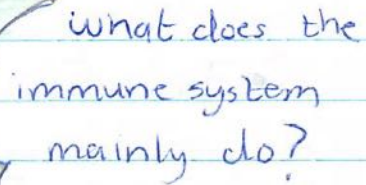 what does the
immune system
mainly do?